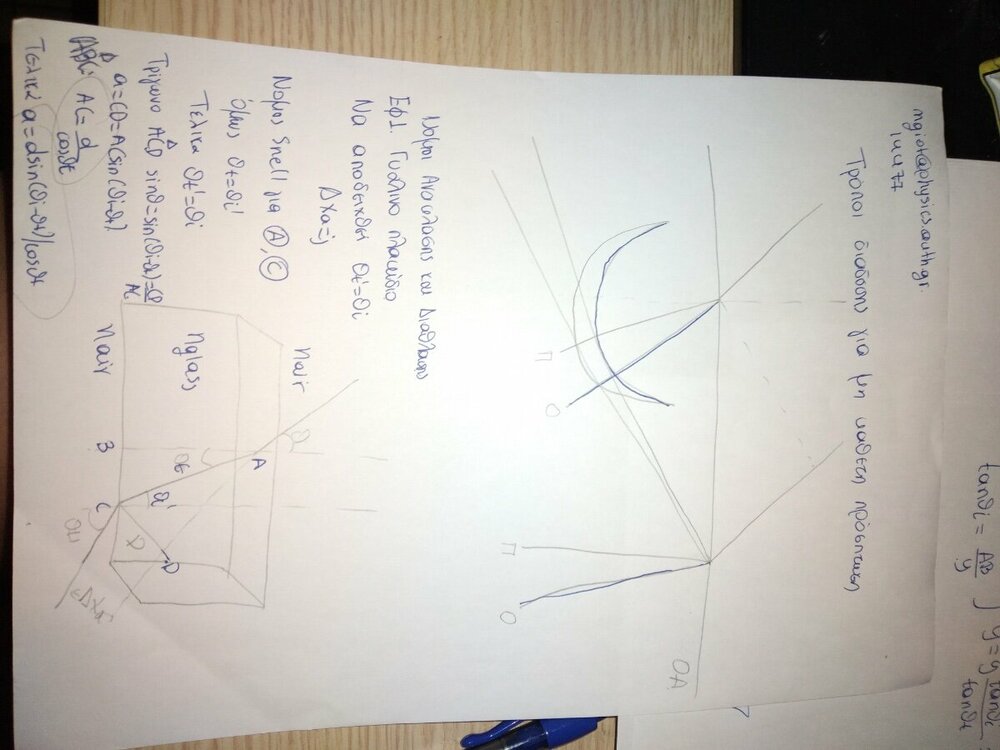 mgiot@physics.auth.gr.
Τρόποι διάδοσης για μη κάθετη πρόσπτωση
Π
Ο
Π
Ο
ΟΑ
Νόμοι Ανάκλασης και Διάθλασης
Εφ1. Γυάλινο πλακίδιο
Να αποδειχθεί θt'=θi
Δxa=;
Νόμος Snell για Ⓐ,Ⓒ
Όμως θt=θi'
Τελικά θt'=θi
Τρίγωνο ACD sinθ=sin(θi-θt)=α/AC
a=CD=ACsin(θi-θt)
ABC: AC=d/cosθt
Τελικά a=dsin(θi-θt)/cosθt
nair
nglass
nair
A
B
C
D
θi
θt
θi'
θt'
Δxa
tanθi = AB/y